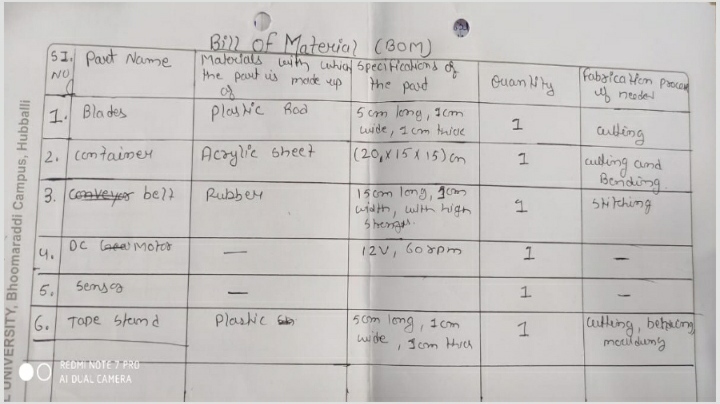 Bill Of Material (BOM)
SI. NO
Part Name
Materials with which the part is made up of
Specifications of the part
Quantity
Fabrication process if needed
1. Blades
Plastic Rod
5 cm long, 1cm wide, 1 cm thick
1
cutting
2. container
Acrylic sheet
(20 x 15 x 15) cm
1
cutting and Bending
3. conveyor belt
Rubber
15cm long, 1cm width, with high
1
stitching
4. DC Motor
—
12V, 60 rpm
1
—
5. Sensor
—
1
—
6. Tape stand
Plastic
5cm long, 1cm wide, 1cm thick
1
cutting, moulding
UNIVERSITY, Bhoomaraddi Campus, Hubballi
REDMI NOTE 7 PRO
AI DUAL CAMERA